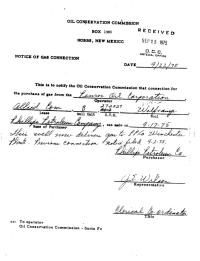 OIL CONSERVATION COMMISSION
BOX 1980
HOBBS, NEW MEXICO
RECEIVED
SEP 23 1975
O.C.C.
NOTICE OF GAS CONNECTION
DATE 9/22/75
This is to notify the Oil Conservation Commission that connection for
the purchase of gas from the Oil Corporation
Operator
Allied Com
Lease
Well Unit
S.T.R.
Wolfcamp
Pool
Phillips Petroleum Company, was made on 9-17-75
Name of Purchaser
This well now delivers gas to
Plant. Previous connection notice filed 9-2-75.
Phillips Petroleum Co
Purchaser
J.E. Wilson
Representative
Title
cc: To operator
Oil Conservation Commission - Santa Fe